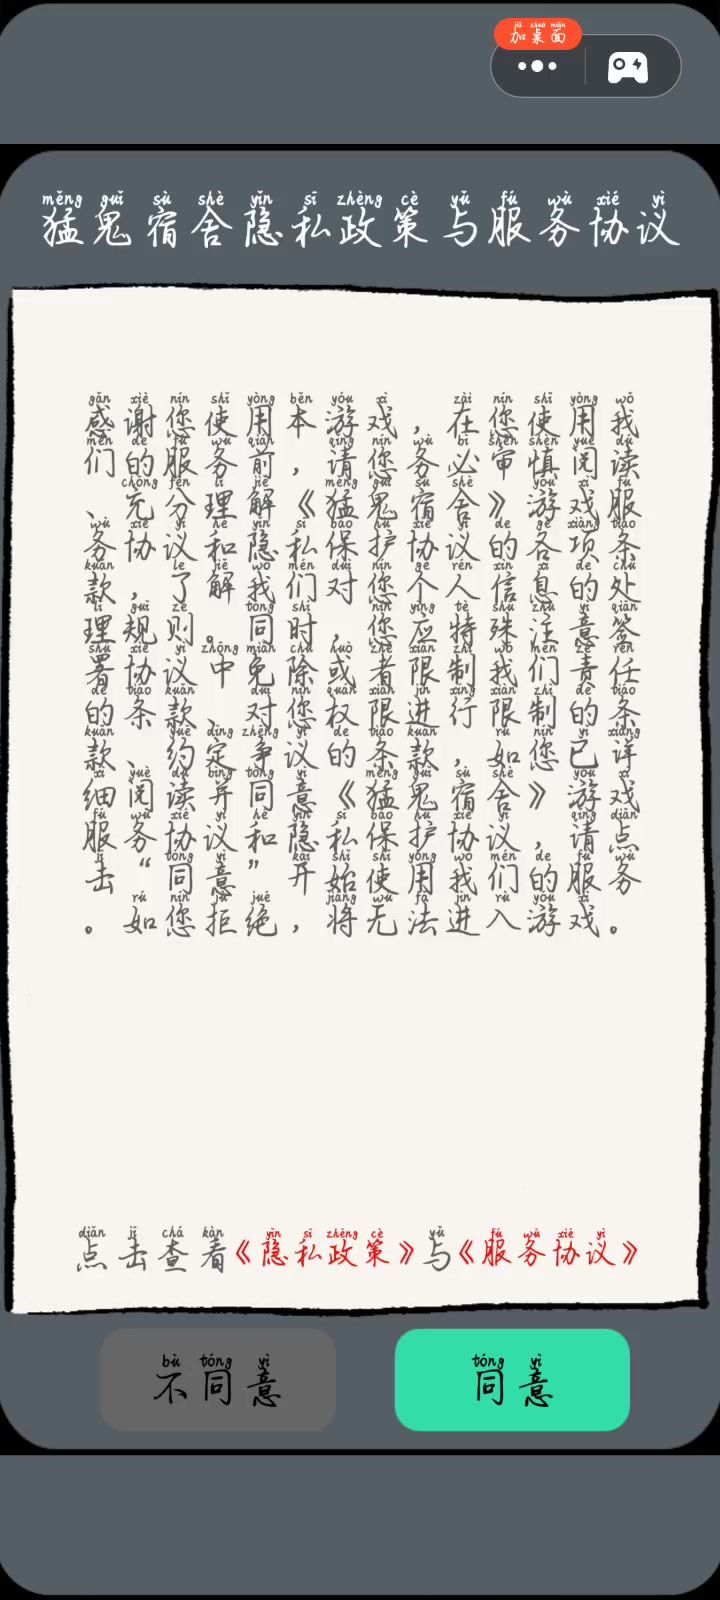 加桌面
猛鬼宿舍隐私政策与服务协议
感谢您使用本游戏，在您使用我
们的服务前，请您务必审慎阅读
、充分理解《猛鬼宿舍》游戏服
务协议和隐私保护协议的各项条
款，了解我们对您个人信息的处
理规则。同时，您应特殊注意签
署协议中免除或者限制我们责任
的条款、对您权限进行限制的条
款、约定争议的条款，如您已详
细阅读并同意《猛鬼宿舍》游戏
服务协议和隐私保护协议，请点
击“同意”开始使用我们的服务
。如您拒绝，将无法进入游戏。
点击查看《隐私政策》与《服务协议》
不同意 同意